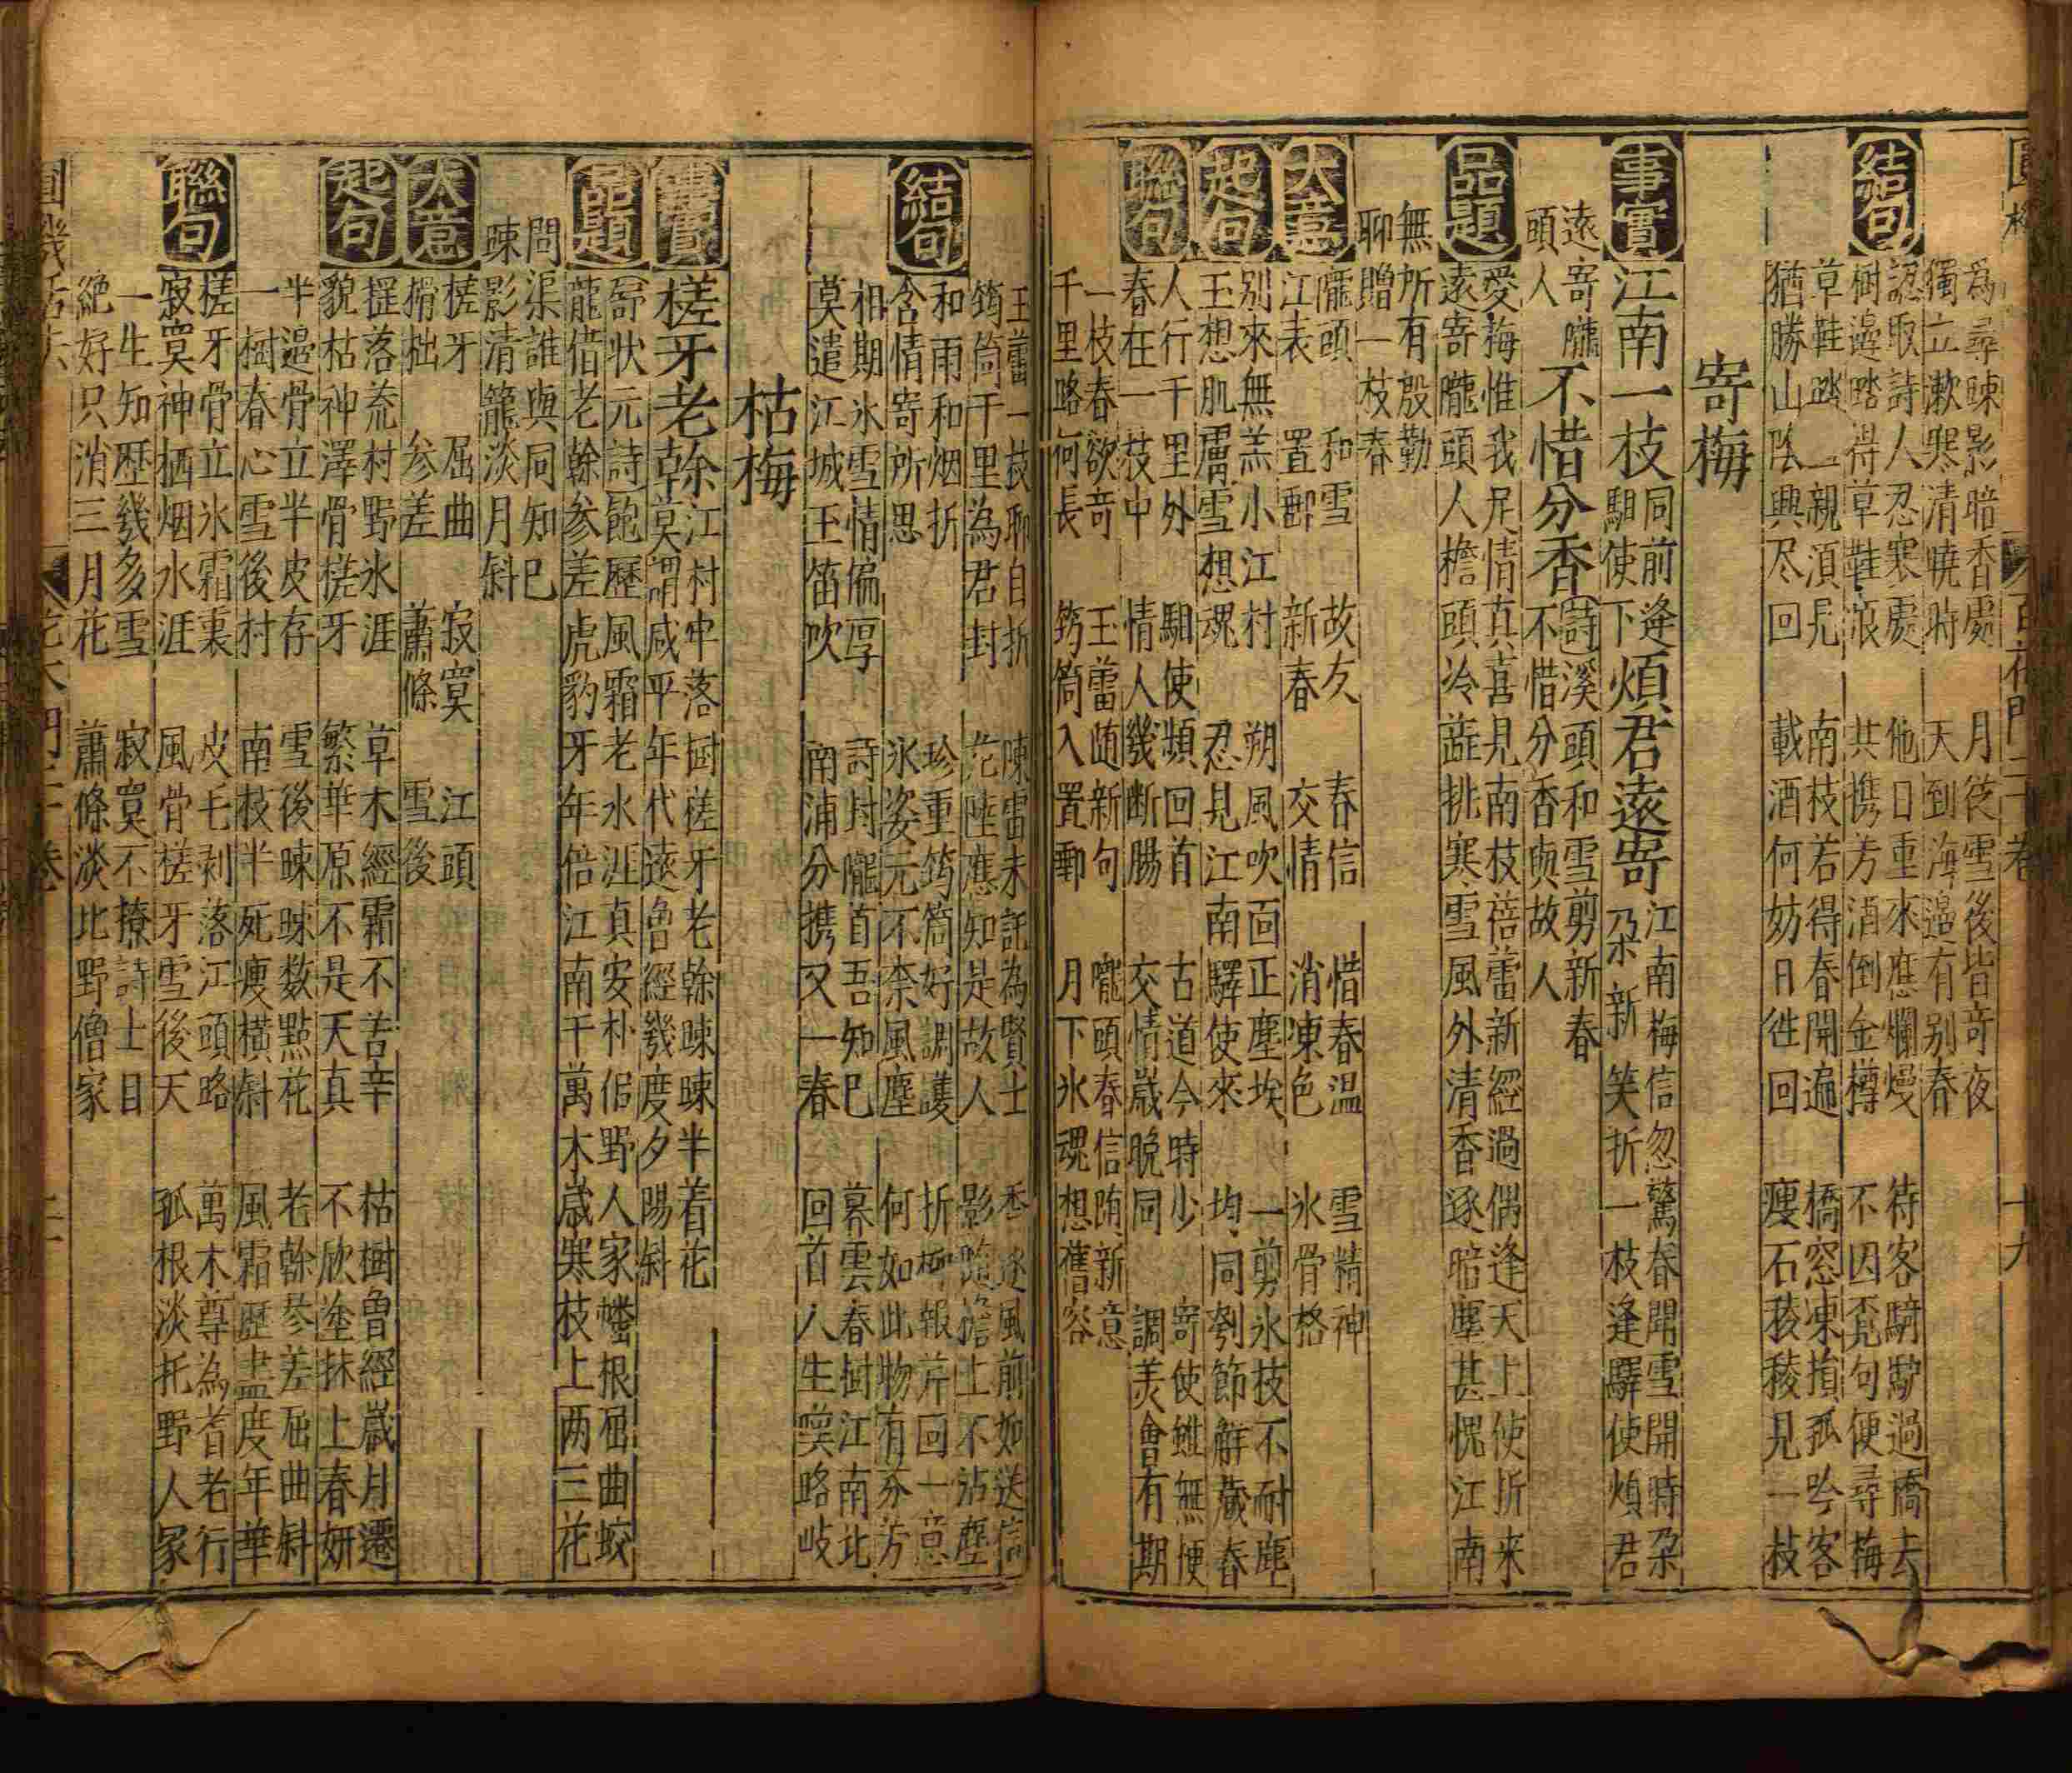 為尋暕影暗香處 月從雪後皆奇夜
獨立漱寒清曉時 天到海邊有別春
結句
認取詩人忍寒處 他日重來應爛熳 待客騎驢過橋去
樹邊踏得草鞋浪 共携芳酒倒金樽 不因覓句便尋梅
草鞋踏一親湏見 南枝若得春開遍 橋窓凍損孤吟客
猶勝山陰興尽回 載酒何妨日徃回 瘦石稜稜見一枝
寄梅
事實
江南一枝
同前逢
馹使下
煩君遠寄
江南梅信忽驚春聞雪開時朶
朶新笑折一枝逢驛使煩君
遠寄隴
頭人
不惜分香
詩溪頭和雪剪新春
不惜分香與故人
品題
愛梅惟我足情真喜見南枝蓓蕾新經過偶逢天上使折来
遠寄隴頭人檐頭冷蕋挑寒雪風外清香逐暗塵甚愧江南
無所有殷勤
聊贈一枝春
大意
隴頭 和雪 故友 春信 惜春温 雪精神
江表 置郵 新春 交情 消凍色 氷骨格
起句
別來無恙小江村 朔風吹面正塵埃 一剪氷枝不耐塵
玉想肌膚雪想魂 忍見江南驛使來 均同剹節觧藏春
聯句
人行千里外 馹使頻回首 古道今時少 寄使雖無便
春在一枝中 情人幾断腸 交情歲晚同 調羙會有期
一枝春欲寄 玉蕾随新句 隴頭春信隨新意
千里路何長 筠筒入置郵 月下氷魂想舊容
玉蕾一枝聊自折 陳雷未託為賢士 香逐風前如送信
筠筒千里為君封 范陸應知是故人 影隨檐上不沾塵
結句
和雨和烟折 珍重筠筒好調護 折柳報芹回一意
含情寄所思 氷姿元不柰風塵 何如此物有芬芳
相期氷雪情偏厚 詩封隴首吾知已 暮雲春樹江南北
莫遣江城玉笛吹 南浦分携又一春 回首人生奠路岐
枯梅
事實
槎牙老榦
江村牢落樹槎牙老榦暕暕半着花
莫謂咸平年代遠魯經幾度夕陽斜
品題
舒狀元詩飽歷風霜老水涯真安朴侣野人家蟠根屈曲蛟
龍借老榦參差虎豹牙年年倍江南千萬木歲寒枝上两三花
問渠誰與同知已
暕影清籠淡月斜
大意
槎牙 屈曲 寂寞 江頭
榾柮 參差 蕭條 雪後
起句
摧落荒村野氷涯 草木經霜不苦辛 枯樹魯經歲月遷
貌枯神澤骨槎牙 繁華原不是天真 不欣塗抹上春妍
半邉骨立半皮存 雪後暕暕数點花 老榦參差屈曲斜
一樹春心雪後村 南枝半死瘦橫斜 風霜歷盡度年華
聯句
槎牙骨立氷霜裏 皮毛剥落江頭路 萬木尊為耆老行
寂寞神栖烟水涯 風骨槎牙雪後天 孤根淡托野人家
一生知歷幾多雪 寂寞不撩詩士目
絶好只消三月花 蕭條淡比野僧家